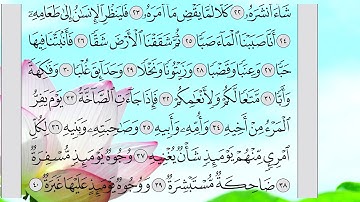 شَآءَ أَنشَرَهُۥ ٢٢ كَلَّا لَمَّا يَقْضِ مَآ أَمَرَهُۥ ٢٣ فَلْيَنظُرِ ٱلْإِنسَٰنُ إِلَىٰ طَعَامِهِۦٓ
٢٤ أَنَّا صَبَبْنَا ٱلْمَآءَ صَبًّا ٢٥ ثُمَّ شَقَقْنَا ٱلْأَرْضَ شَقًّا ٢٦ فَأَنۢبَتْنَا فِيهَا
حَبًّا ٢٧ وَعِنَبًا وَقَضْبًا ٢٨ وَزَيْتُونًا وَنَخْلًا ٢٩ وَحَدَآئِقَ غُلْبًا ٣٠ وَفَٰكِهَةً
وَأَبًّا ٣١ مَّتَٰعًا لَّكُمْ وَلِأَنْعَٰمِكُمْ ٣٢ فَإِذَا جَآءَتِ ٱلصَّآخَّةُ ٣٣ يَوْمَ يَفِرُّ
ٱلْمَرْءُ مِنْ أَخِيهِ ٣٤ وَأُمِّهِۦ وَأَبِيهِ ٣٥ وَصَٰحِبَتِهِۦ وَبَنِيهِ ٣٦ لِكُلِّ
ٱمْرِئٍ مِّنْهُمْ يَوْمَئِذٍ شَأْنٌ يُغْنِيهِ ٣٧ وُجُوهٌ يَوْمَئِذٍ مُّسْفِرَةٌ
٣٨ ضَاحِكَةٌ مُّسْتَبْشِرَةٌ ٣٩ وَوُجُوهٌ يَوْمَئِذٍ عَلَيْهَا غَبَرَةٌ ٤٠